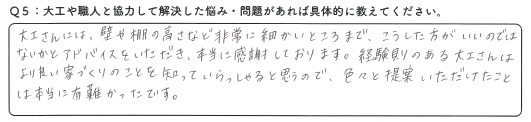 Q5：大工や職人と協力して解決した悩み・問題があれば具体的に教えてください。
大工さんには、壁や棚の高さなど非常に細かいところまで、こうした方がいいのでは
ないかとアドバイスをいただき、本当に感謝しております。経験則のある大工さんは
より良い家づくりのことを知っていらっしゃると思うので、色々と提案いただけたこと
は本当に有難かったです。